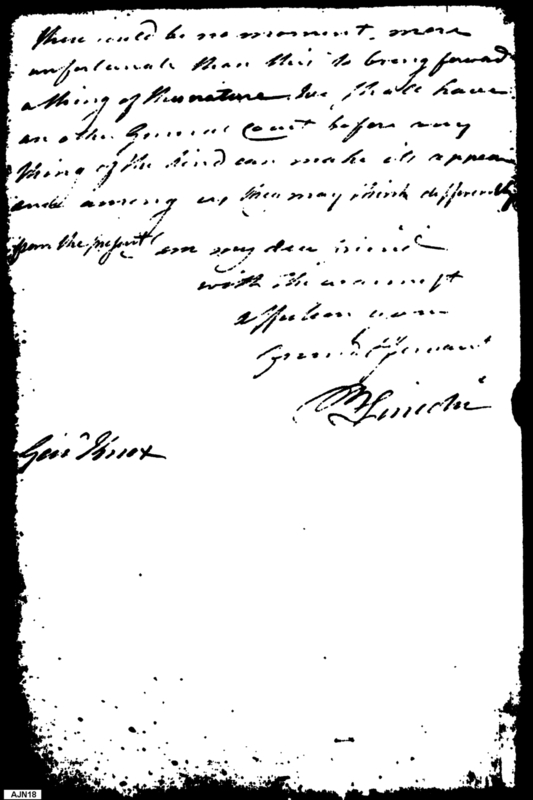 there could be no moment more
unfortunate than this to bring forward
a thing of this nature. We shall have
an other General Court before any
thing of the kind can make its appear
ance among us they may think differently
from the present I am my dear friend
with the warmest
affection your
humbl Servant
B Lincoln
Genl Knox
AJN18